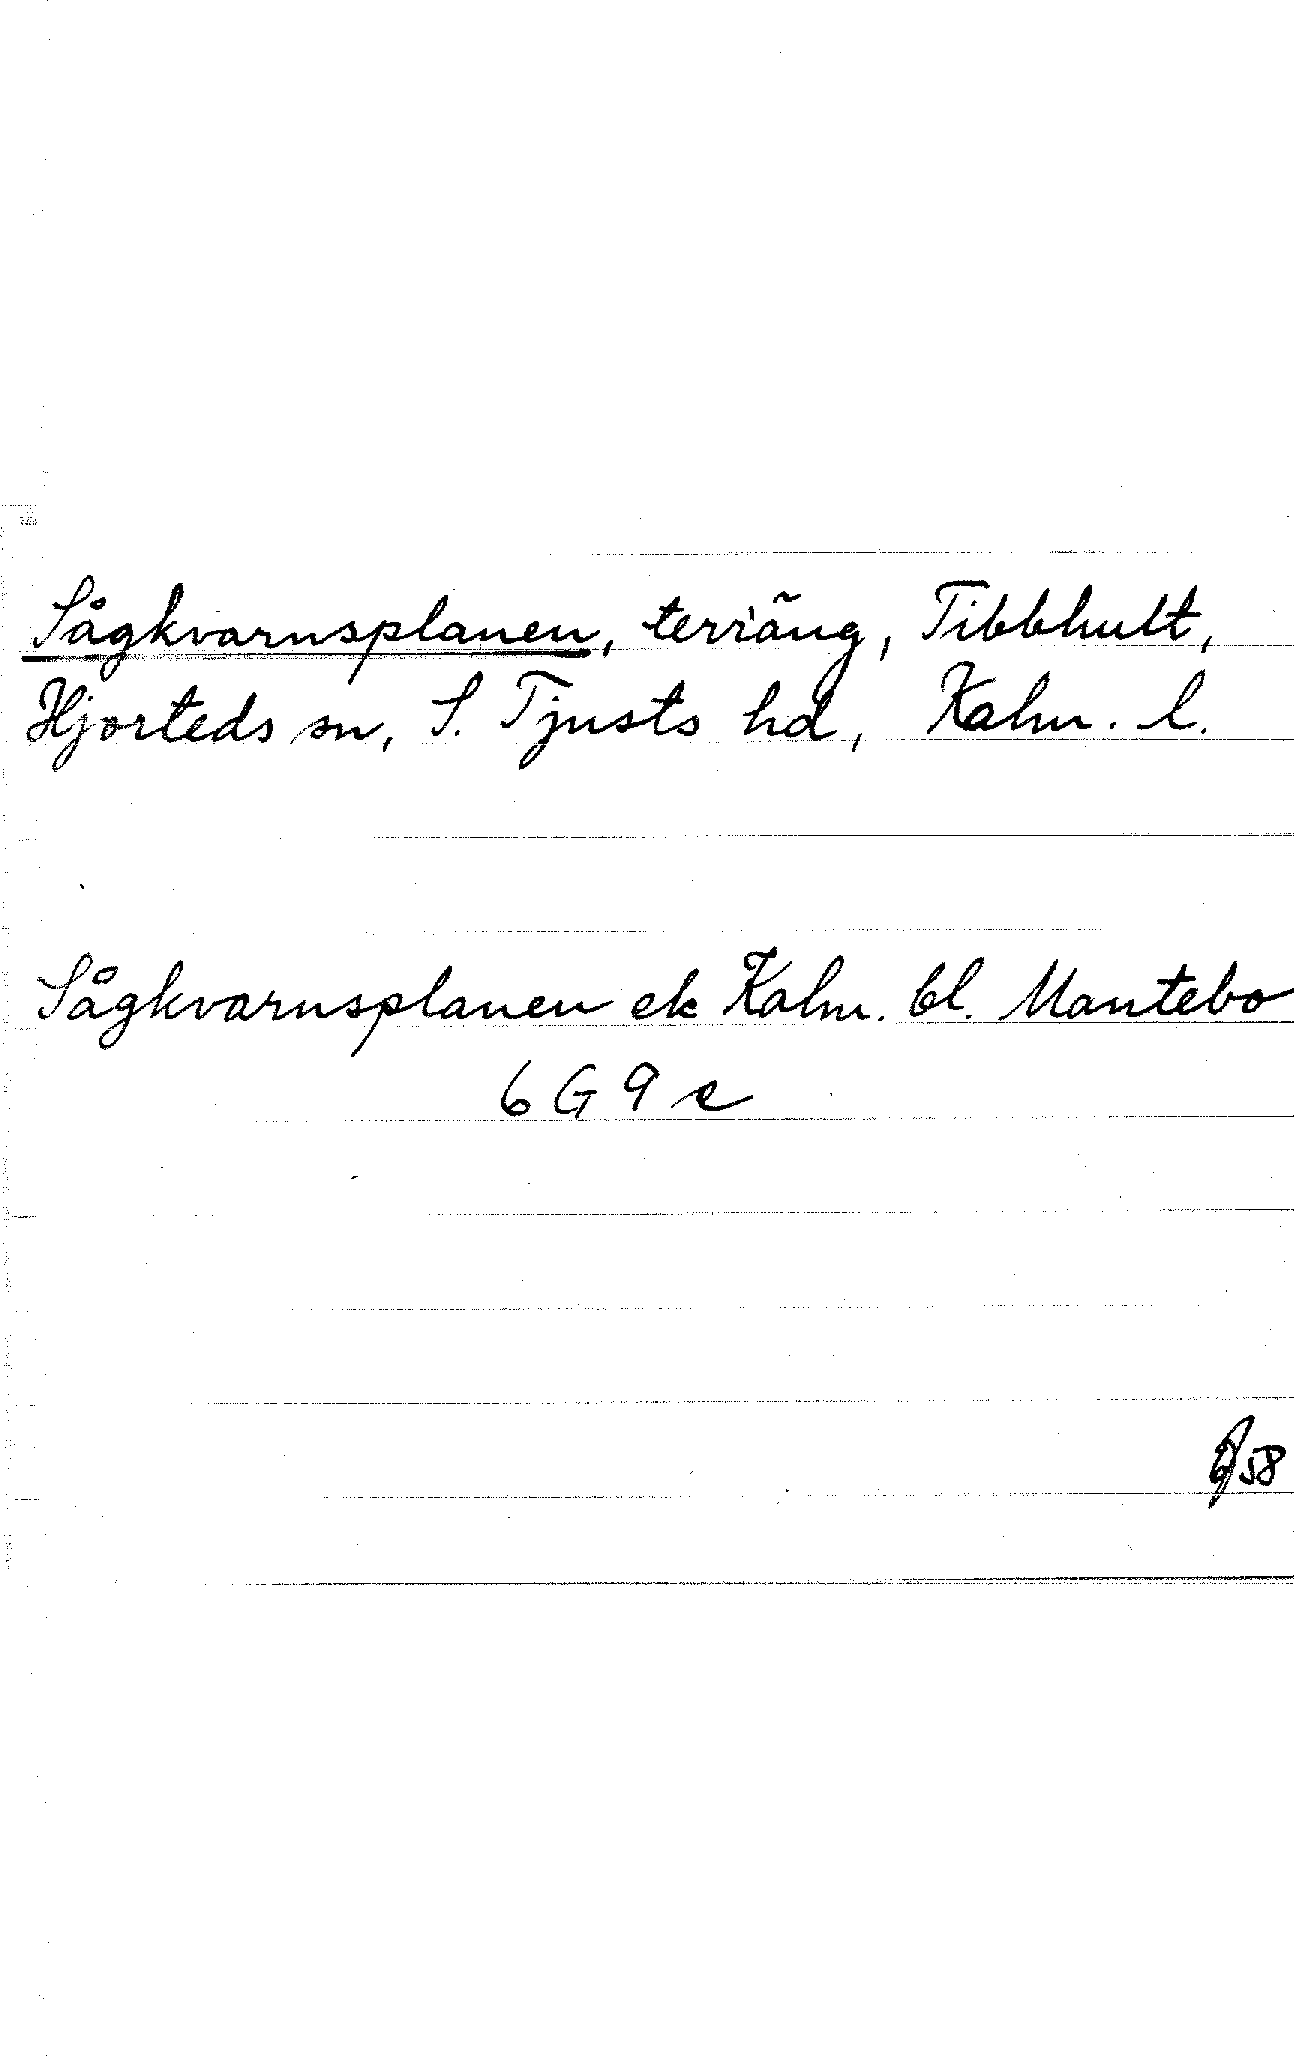 Sågkvarnsplanen, terräng, Tibbhult,
Hjorteds sn, S. Tjusts hd, Kalm. l.
Sågkvarnsplanen ek Kalm. bl. Mantebo
6G9e
58